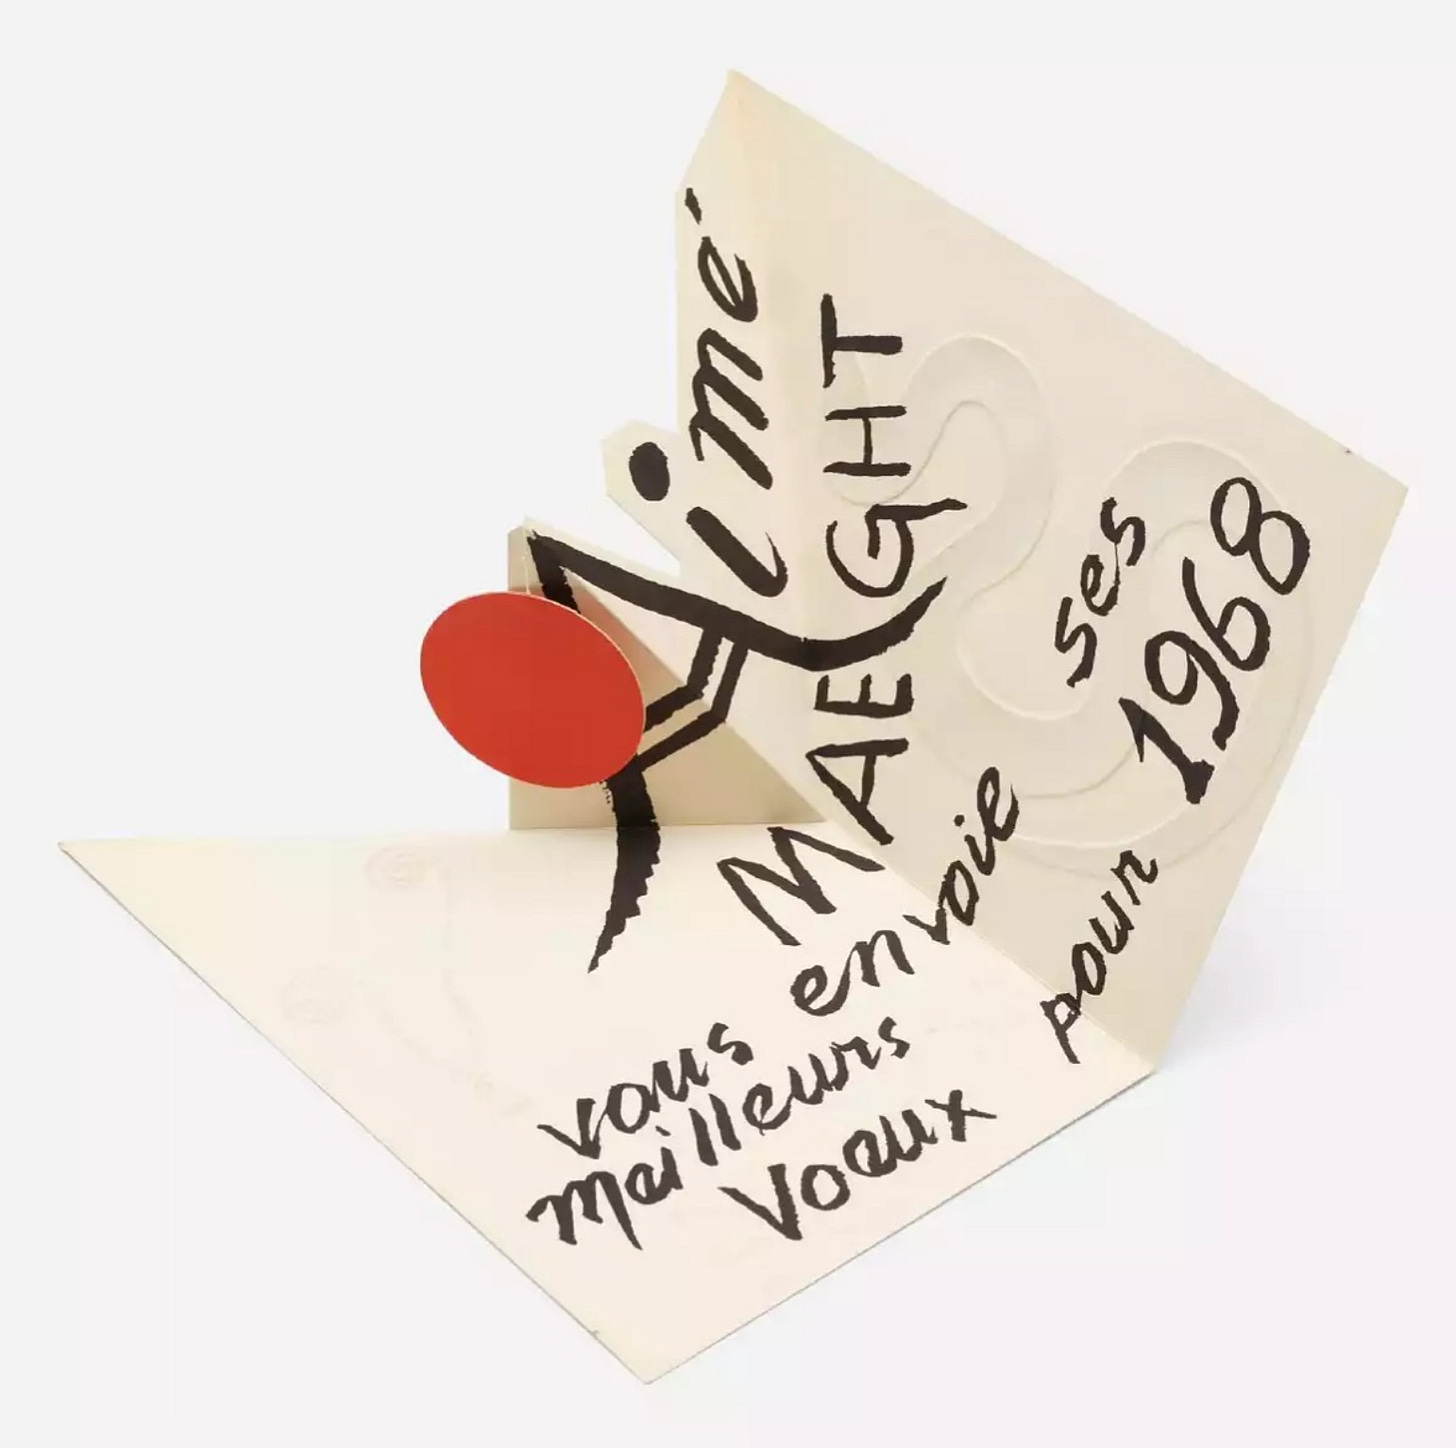 Aimé
MAEGHT
vous envoie ses
meilleurs
voeux pour 1968